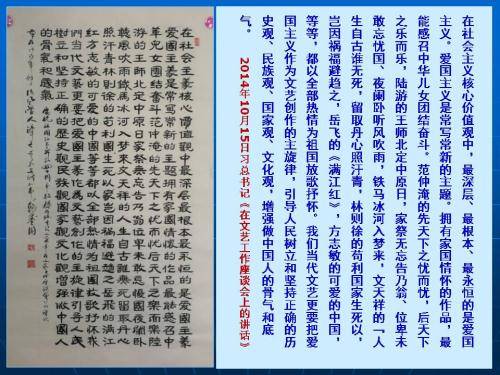 在社会主义核心价值观中，最深层、最根本、最永恒的是爱国
主义。爱国主义是常写常新的主题。拥有家国情怀的作品，最
能感召中华儿女团结奋斗。范仲淹的先天下之忧而忧，后天下
之乐而乐，陆游的王师北定中原日，家祭无忘告乃翁、位卑未
敢忘忧国、夜阑卧听风吹雨，铁马冰河入梦来，文天祥的「人
生自古谁无死，留取丹心照汗青，林则徐的苟利国家生死以，
岂因祸福避趋之，岳飞的《满江红》，方志敏的可爱的中国，
等等，都以全部热情为祖国放歌抒怀。我们当代文艺更要把爱
国主义作为文艺创作的主旋律，引导人民树立和坚持正确的历
史观、民族观、国家观、文化观，增强做中国人的骨气和底
气。 2014年10月15日习总书记《在文艺工作座谈会上的讲话》
在社会主義核心價值觀中最深層最根本最永恒的是
愛國主義是常寫常新的主題擁有家國情懷的作品最能感召中
華兒女團結奮斗范仲淹的先天下之憂而憂後天下之樂而樂陸
游的王師北定中原日家祭無忘告乃翁位卑未敢忘憂國夜闌卧
聽風吹雨鐵馬冰河入夢來文天祥人生自古誰無死留取丹心
照汗青林則徐的苟利國家生死以豈因禍福避趨之岳飛的滿江
紅方志敏的可愛的中國等等都以全部熱情為祖國放歌抒懷我
們當代文藝更要把愛國主義作為文藝創作的主旋律引導人民
樹立和堅持正確的歷史觀民族觀國家觀文化觀增強做中國人
的骨氣和底氣